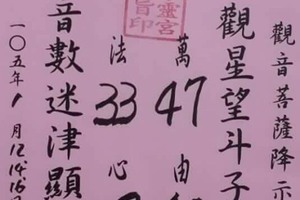 觀音菩薩降示
觀星望斗子
萬47由
法33心
音數迷津顯
一〇五年1月12.14.16日